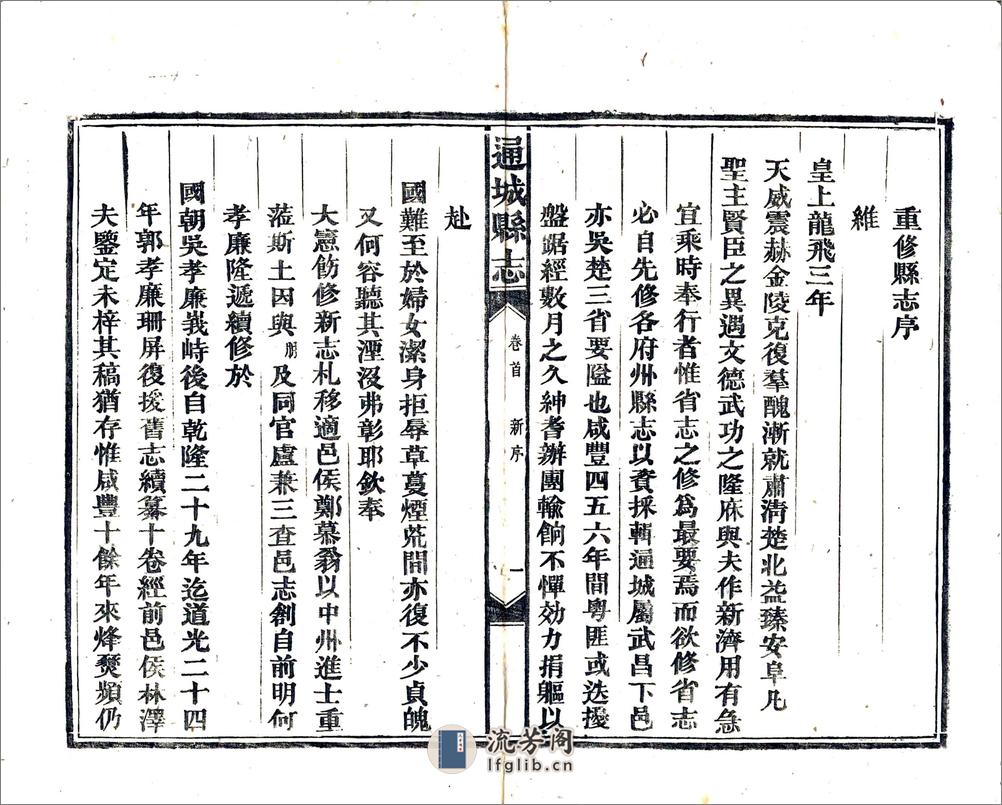 重修縣志序
維
皇上龍飛三年
天威震赫金陵克復羣醜漸就肅清楚北益臻安阜凡
聖主賢臣之異遇文德武功之隆庥與夫作新濟用有急
宜乘時奉行者惟省志之修爲最要焉而欲修省志
必自先修各府州縣志以資採輯通城屬武昌下邑
亦吳楚三省要隘也咸豐四五六年間粵匪或迭擾
盤踞經數月之久紳耆辦團輸餉不憚効力捐軀以
通城縣志
卷首
新序
一
赴
國難至於婦女潔身拒辱草蔓煙荒間亦復不少貞魄
又何容聽其湮沒弗彰耶欽奉
大憲飭修新志札移適邑侯鄭慕翁以中州進士重
蒞斯土因與朋及同官盧兼三查邑志創自前明何
孝廉隆遞續修於
國朝吳孝廉峩峙後自乾隆二十九年迄道光二十四
年郭孝廉珊屏復援舊志續纂十卷經前邑侯林澤
夫鑒定未梓其稿猶存惟咸豐十餘年來烽燹頻仍
流芳阁
lfglib.cn